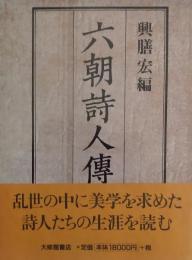 興膳宏編
六朝詩人傳
乱世の中に美学を求めた
詩人たちの生涯を読む
大修館書店 ●定価 本体18000円+税